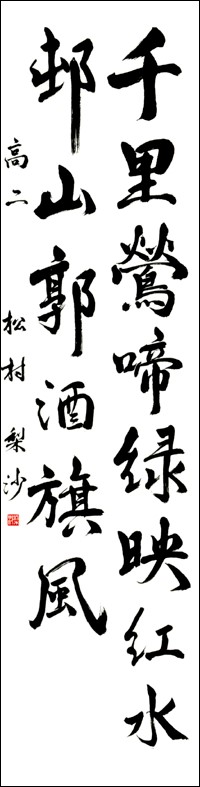 千里鶯啼緑映紅水
邨山郭酒旗風
高二 松村梨沙